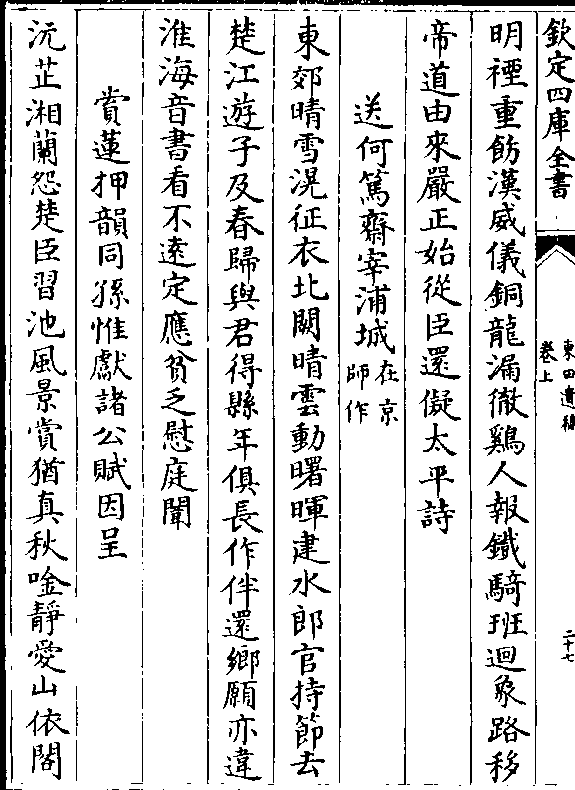 欽定四庫全書
東田遺稿
卷上
二十七
明禋重飭漢威儀銅龍漏徹鷄人報鐵騎班迴象路移
帝道由來嚴正始從臣還儗太平詩
送何篤齋宰浦城在京師作
東郊晴雪滉征衣北闕晴雲動曙暉建水郎官持節去
楚江遊子及春歸與君得縣年俱長作伴還鄉願亦違
淮海音書看不遠定應貧乏慰庭闈
賞蓮押韻同孫惟獻諸公賦因呈
沅芷湘蘭怨楚臣習池風景賞猶真秋唫靜愛山依閣